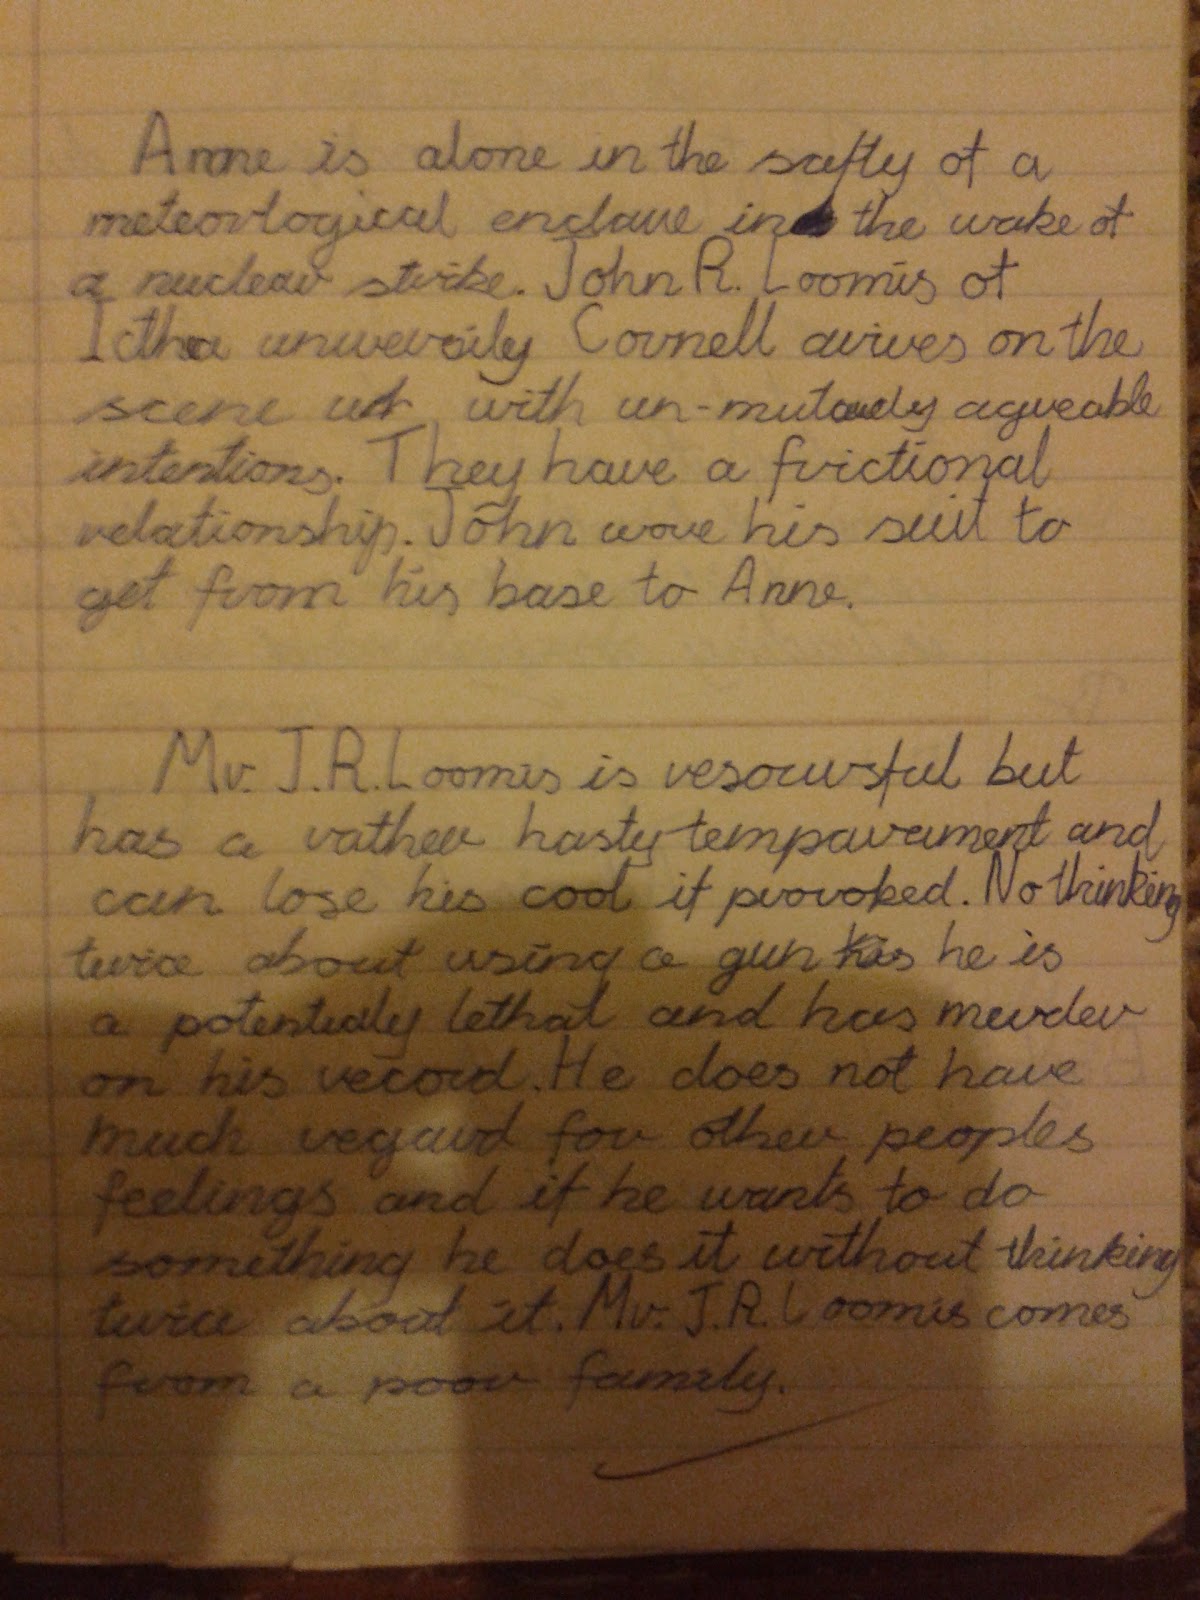 Anne is alone in the safty of a
meteorlogical enclave in the wake of
a nuclear strike. John R. Loomis of
Ictha unwersily Cornell arives on the
scene with un-mutaudy agreable
intentions. They have a frictional
relationship. John wore his suit to
get from his base to Anne.
Mr. J.R. Loomis is resoursful but
has a rather hasty temparament and
can lose his cool if provoked. No thinking
twice about using a gun he is
a potentialy lethal and has murder
on his record. He does not have
much regard for other peoples
feelings and if he wants to do
something he does it without thinking
twice about it. Mr. J.R. Loomis comes
from a poor family.